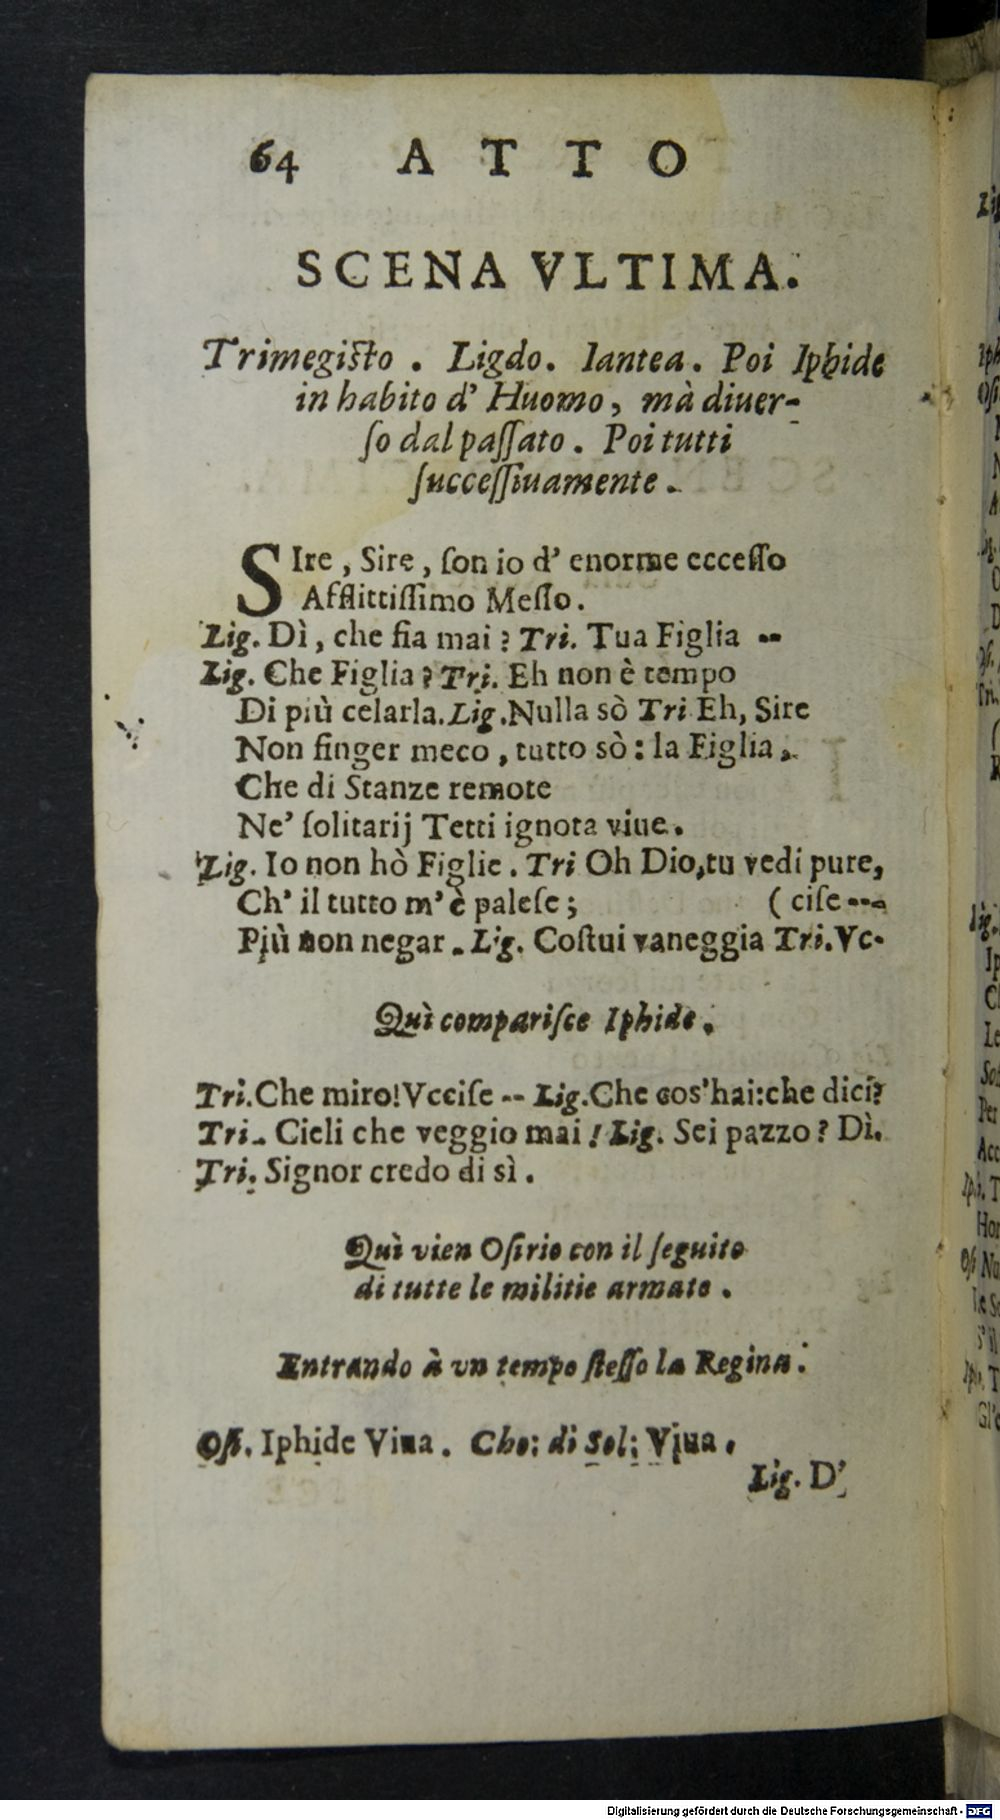 64 ATTO
SCENA VLTIMA.
Trimegisto . Ligdo. Iantea . Poi Iphide
in habito d' Huomo, mà diuer-
ſo dal paſſato . Poi tutti
ſucceſſiuamente .
SIre , Sire , ſon io d' enorme ecceſſo
Afflittiſſimo Meſſo.
Lig. Dì, che fia mai ? Tri. Tua Figlia --
Lig. Che Figlia ? Tri. Eh non è tempo
Di più celarla. Lig. Nulla sò Tri Eh, Sire
Non finger meco , tutto sò : la Figlia,
Che di Stanze remote
Ne' ſolitarij Tetti ignota viue.
Lig. Io non hò Figlie . Tri Oh Dio, tu vedi pure,
Ch' il tutto m' è paleſe ; ( ciſe ---
Più non negar . Lig. Coſtui vaneggia Tri. Vc-
Quì compariſce Iphide .
Tri. Che miro! Vcciſe -- Lig. Che cos'hai: che dici?
Tri. Cieli che veggio mai ! Lig. Sei pazzo ? Dì.
Tri. Signor credo di sì .
Quì vien Oſirio con il ſeguito
di tutte le militie armate .
Entrando à vn tempo ſteſſo la Regina .
Oſi. Iphide Viua . Cho: di Sol: Viua .
Lig. D'
Lig
Iph
Digitalisierung gefördert durch die Deutsche Forschungsgemeinschaft - DFG